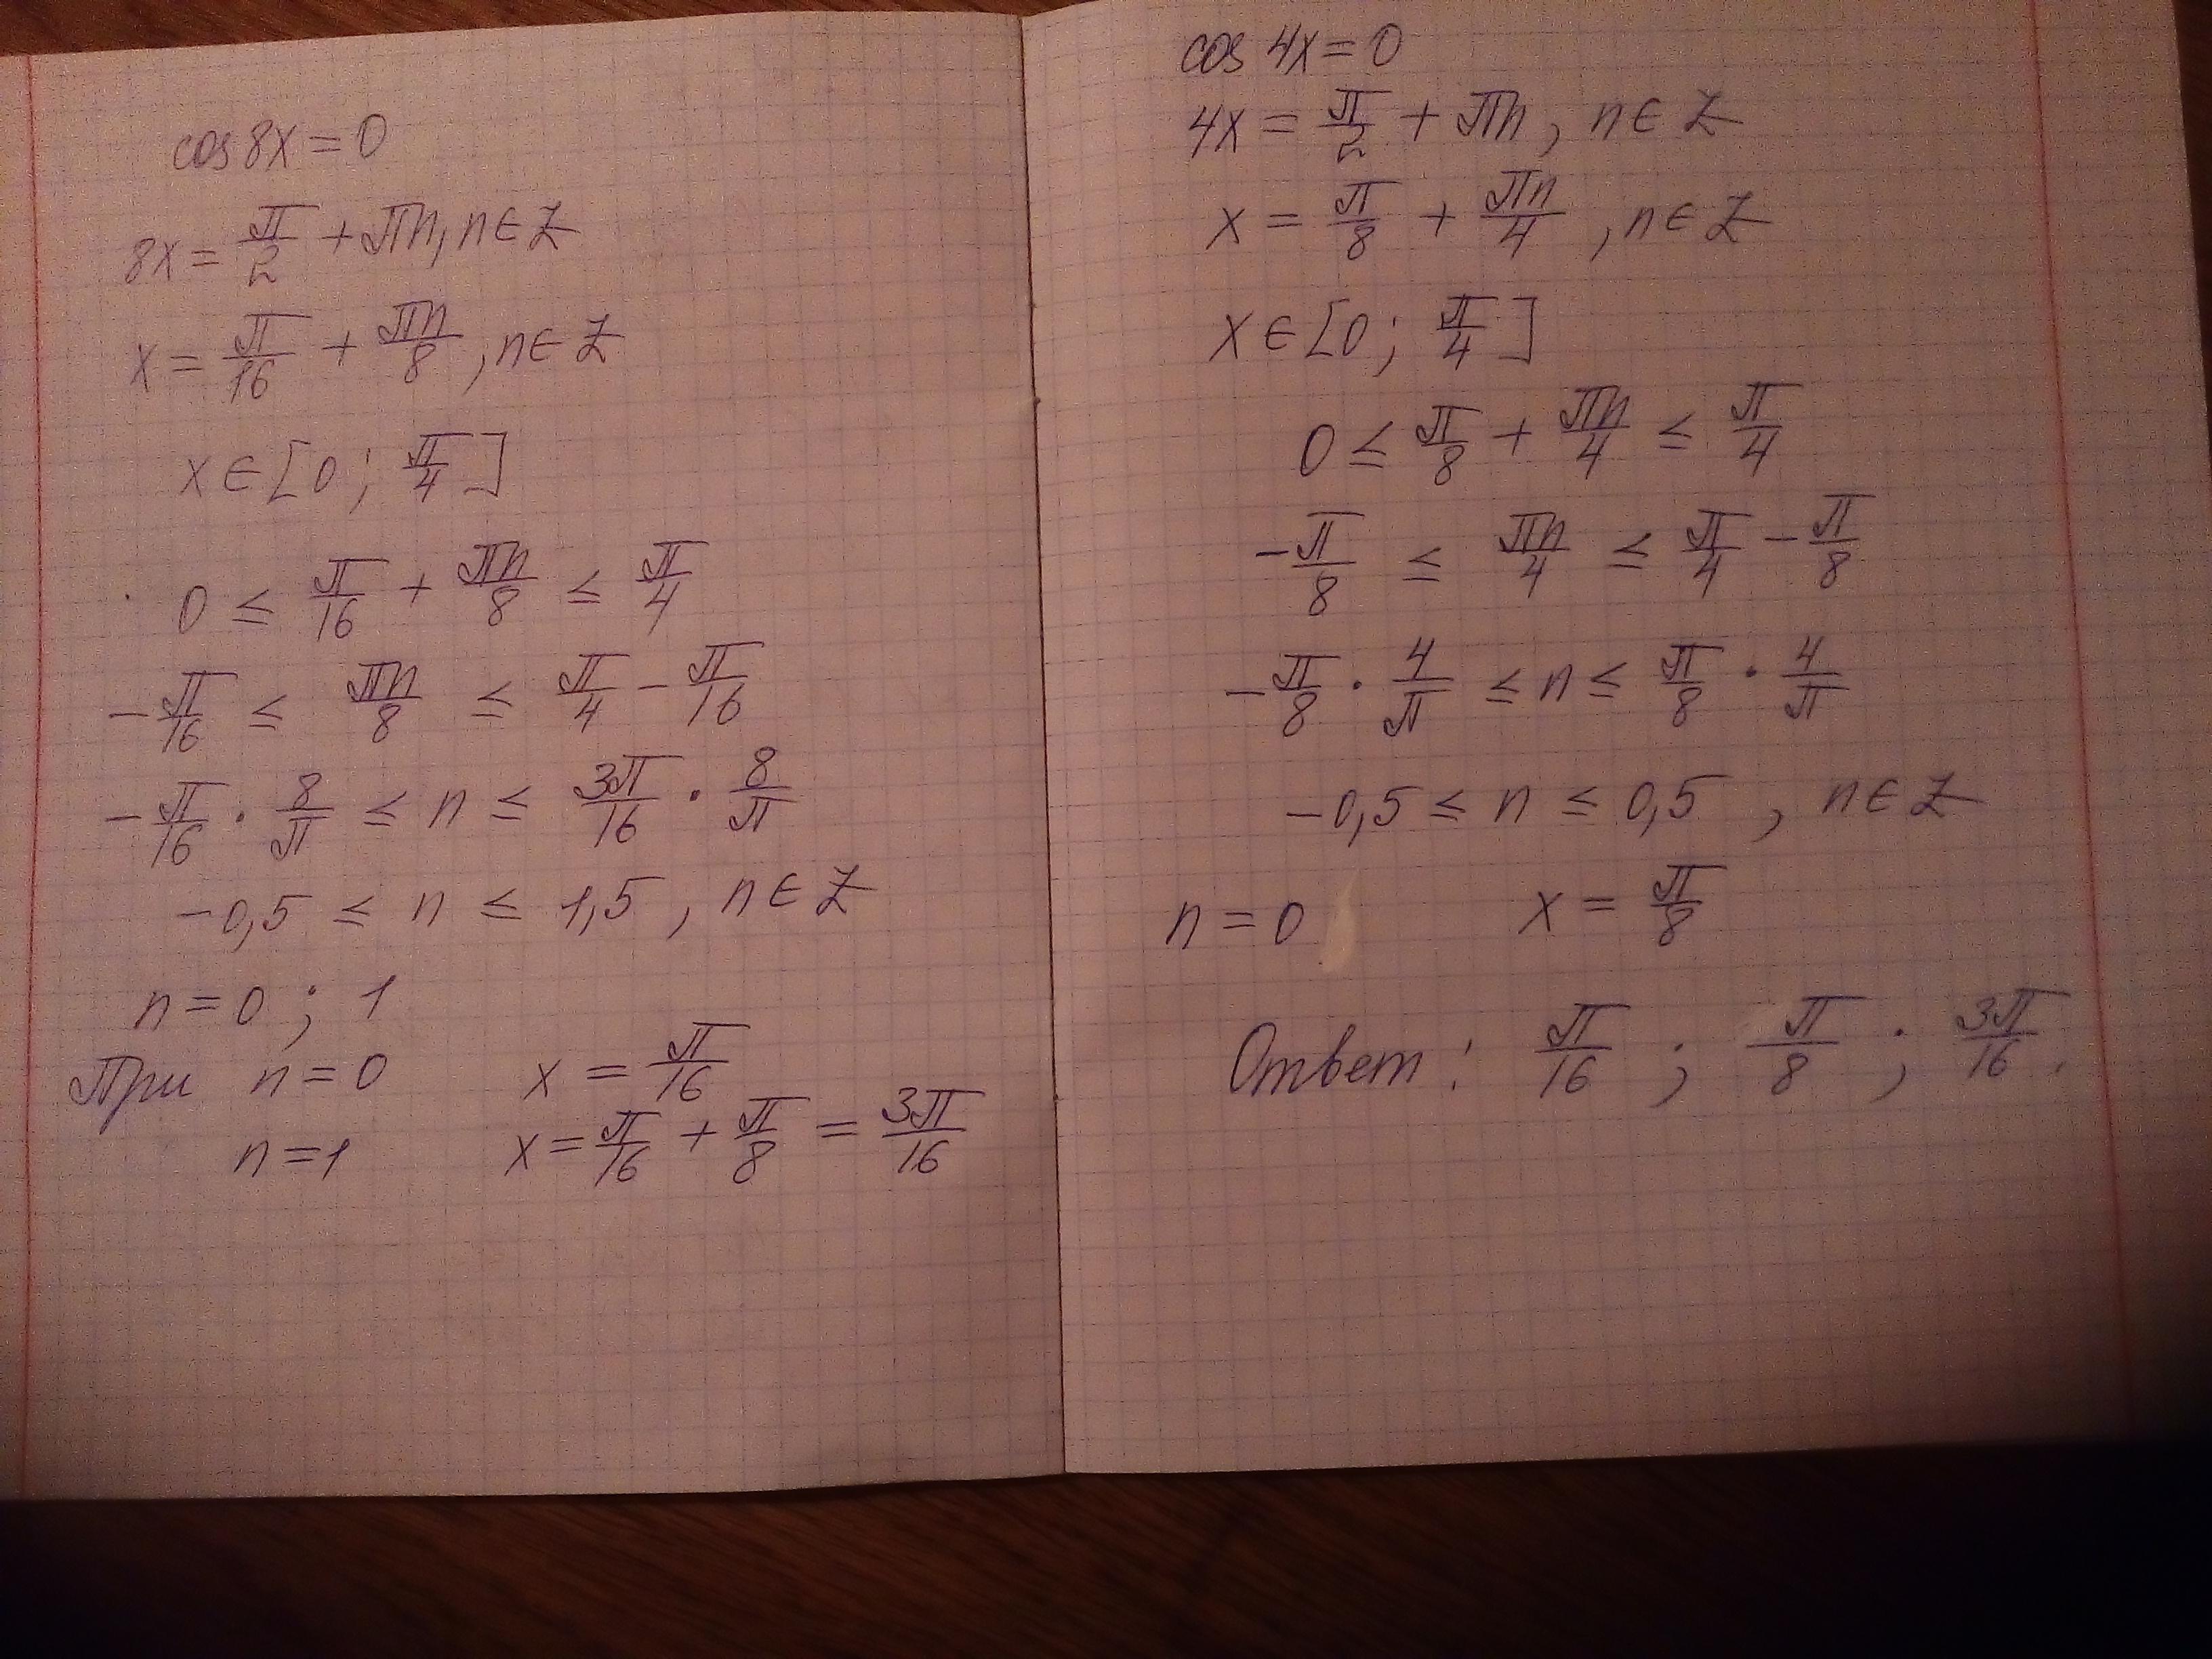 cos 8x = 0
8x = π/2 + πn, n ∈ Z
x = π/16 + πn/8, n ∈ Z
x ∈ [0; π/4]
0 ≤ π/16 + πn/8 ≤ π/4
-π/16 ≤ πn/8 ≤ π/4 - π/16
-π/16 · 8/π ≤ n ≤ 3π/16 · 8/π
-0,5 ≤ n ≤ 1,5, n ∈ Z
n = 0; 1
При n = 0 x = π/16
n = 1 x = π/16 + π/8 = 3π/16
cos 4x = 0
4x = π/2 + πn, n ∈ Z
x = π/8 + πn/4, n ∈ Z
x ∈ [0; π/4]
0 ≤ π/8 + πn/4 ≤ π/4
-π/8 ≤ πn/4 ≤ π/4 - π/8
-π/8 · 4/π ≤ n ≤ π/8 · 4/π
-0,5 ≤ n ≤ 0,5, n ∈ Z
n = 0 x = π/8
Ответ: π/16; π/8; 3π/16.